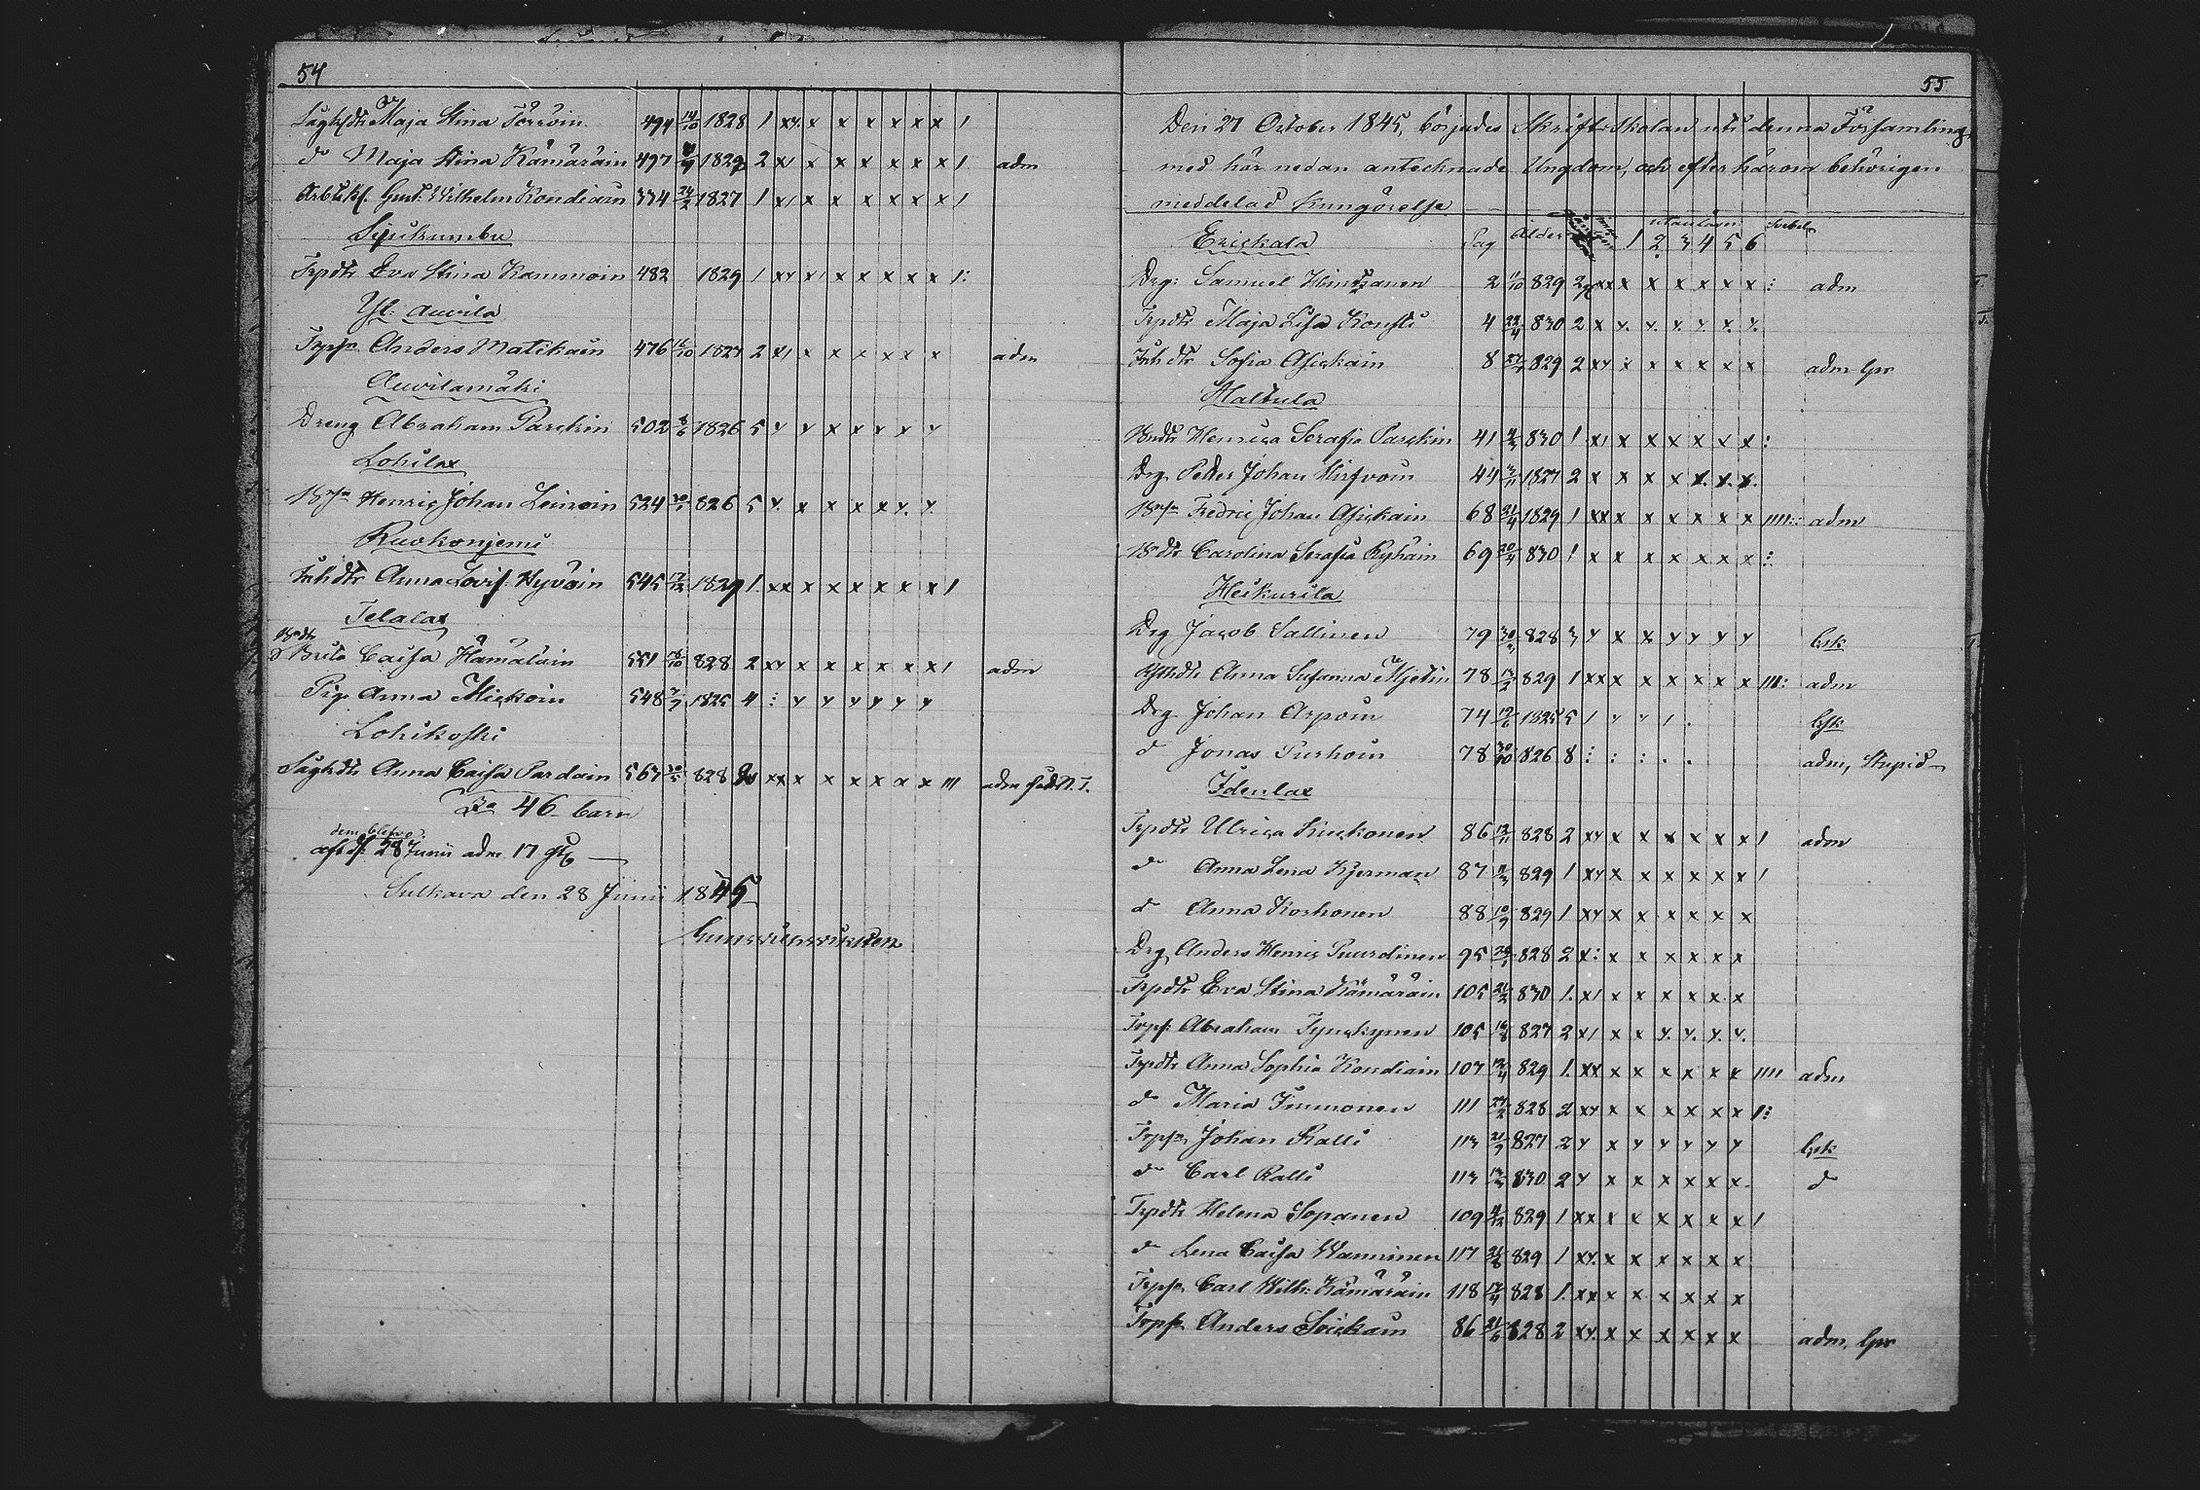 54
Maja Stina Törröin 494 14/10 1828 1 xy. x x x x x x 1
d Maja Stina Kämäräin 497 1829 2 x1 x x x x x x 1 adm
Gust: Wilhelm Kondiain 334 24/2 1827 1 x1 x x x x x x 1
Trpdtr Eva Stina Kammoin 482 1829 1 xy x1 x x x x x 1:
Yl: Auvila
Trpsn Anders Matikain 476 1827 2 x1 x x x x x x adm
Auvilamäki
Dreng Abraham Parckin 502 1826 5 y y x x x x y
Lohilax
Henric Johan Leinoin 524 826 5 y. x x x x y. y.
Ruokoniemi
Inh dtr Anna Lovis. Hyväin 545 17/12 1829 1. xx x x x x x x 1
Telalax
Brita Caisa Hämäläin 551 828 2 xy x x x x x x 1 adm
Pig. Anna Mickoin 548 1825 4 : y y y y y y
Lohikoski
Anna Caisa Pardain 567 828 xx x x x x x x 111 adm
46 barn
28 Junii adm 17
Sulkava den 28 Junii 1845
55
Den 27 October 1845, börjades Skriftskolan uti denna Församling
med här nedan antecknade Ungdom, och efter härom behörigen
meddelad Kungörelse
Erickala Pag Ålder utanläsn 1 2 3 4 5 6
Drg: Samuel 2 11/10 829 2 xx x x x x x x : adm
Trpdtr Maja Lisa Konsti 4 22/4 830 2 x y. y. y. y. x. y.
Inh dtr Sofia Asickain 8 829 2 xy x x x x x x adm
Halttula
Henrica Serafia Parckin 41 830 1 x1 x x x x x x :
Drg. Peder Johan Hirfvoin 44 1827 2 x x x x x. x. x.
Fredric Johan Asickain 68 21/4 1829 1 xx x x x x x x 1111: adm
Carolina Serafia Ryhäin 69 830 1 x x x x x x x :
Heikurila
Drg Jacob Sallinen 79 828 3 y x x y y y y
Anna Susanna 78 829 1 xx x x x x x x 111: adm
Drg. Johan Arpoin 74 1825 5 1 y y 1 .
d Jonas Turhoin 78 30/10 826 8 : : : . . adm, Stupid
Idenlax
Trpdtr Ulrica Kuckonen 86 12/11 828 2 xy x x x x x x 1 adm
d Anna Lena Kjerman 87 829 1 xy x x x x x x 1
d Anna Korhonen 88 829 1 xy x x x x x x
Drg. Anders Henric Puurdinen 95 828 2 x: x x x x x x
Trpdtr Eva Stina Kämäräin 105 830 1. x1 x x x x x x
Trps. Abraham Tynckynen 105 827 2 x1 x x y. y. y. y.
Trpdtr Anna Sophia Kondiain 107 829 1. xx x x x x x x 1111 adm
d Maria Immonen 111 27/2 828 2 xy x x x x x x 1:
Trpsn Johan Ralli 113 827 2 y x y y y y y
d Carl Ralli 113 830 2 y x x x x x x d
Trpdtr Helena Sopanen 109 829 1 xx x x x x x x 1
d Lena Caisa Wanninen 117 829 1 xy. x x x x x x
Trpsn Carl Wilh: Kämäräin 118 828 1. xx x x x x x x
Trpsn Anders Soickain 86 828 2 xy. x x x x x x adm,